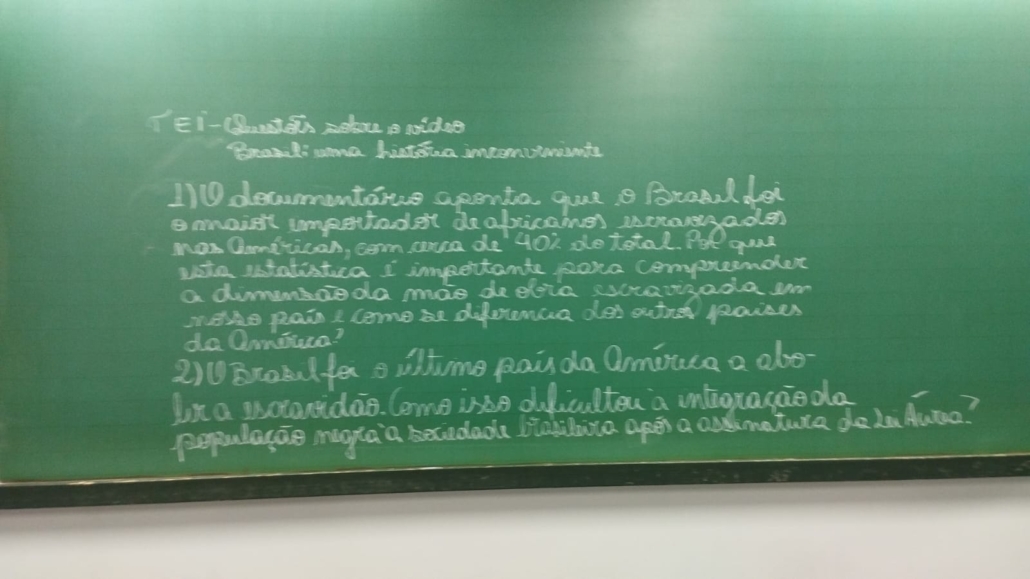 TEI - Questões sobre o vídeo
Brasil: uma história inconveniente
1) O documentário aponta que o Brasil foi
o maior importador de africanos escravizados
nas Américas, com cerca de 40% do total. Por que
esta estatística é importante para compreender
a dimensão da mão de obra escravizada em
nosso país e como se diferencia dos outros países
da América?
2) O Brasil foi o último país da América a abo-
lir a escravidão. Como isso dificultou a integração da
população negra à sociedade brasileira após a assinatura da Lei Áurea?